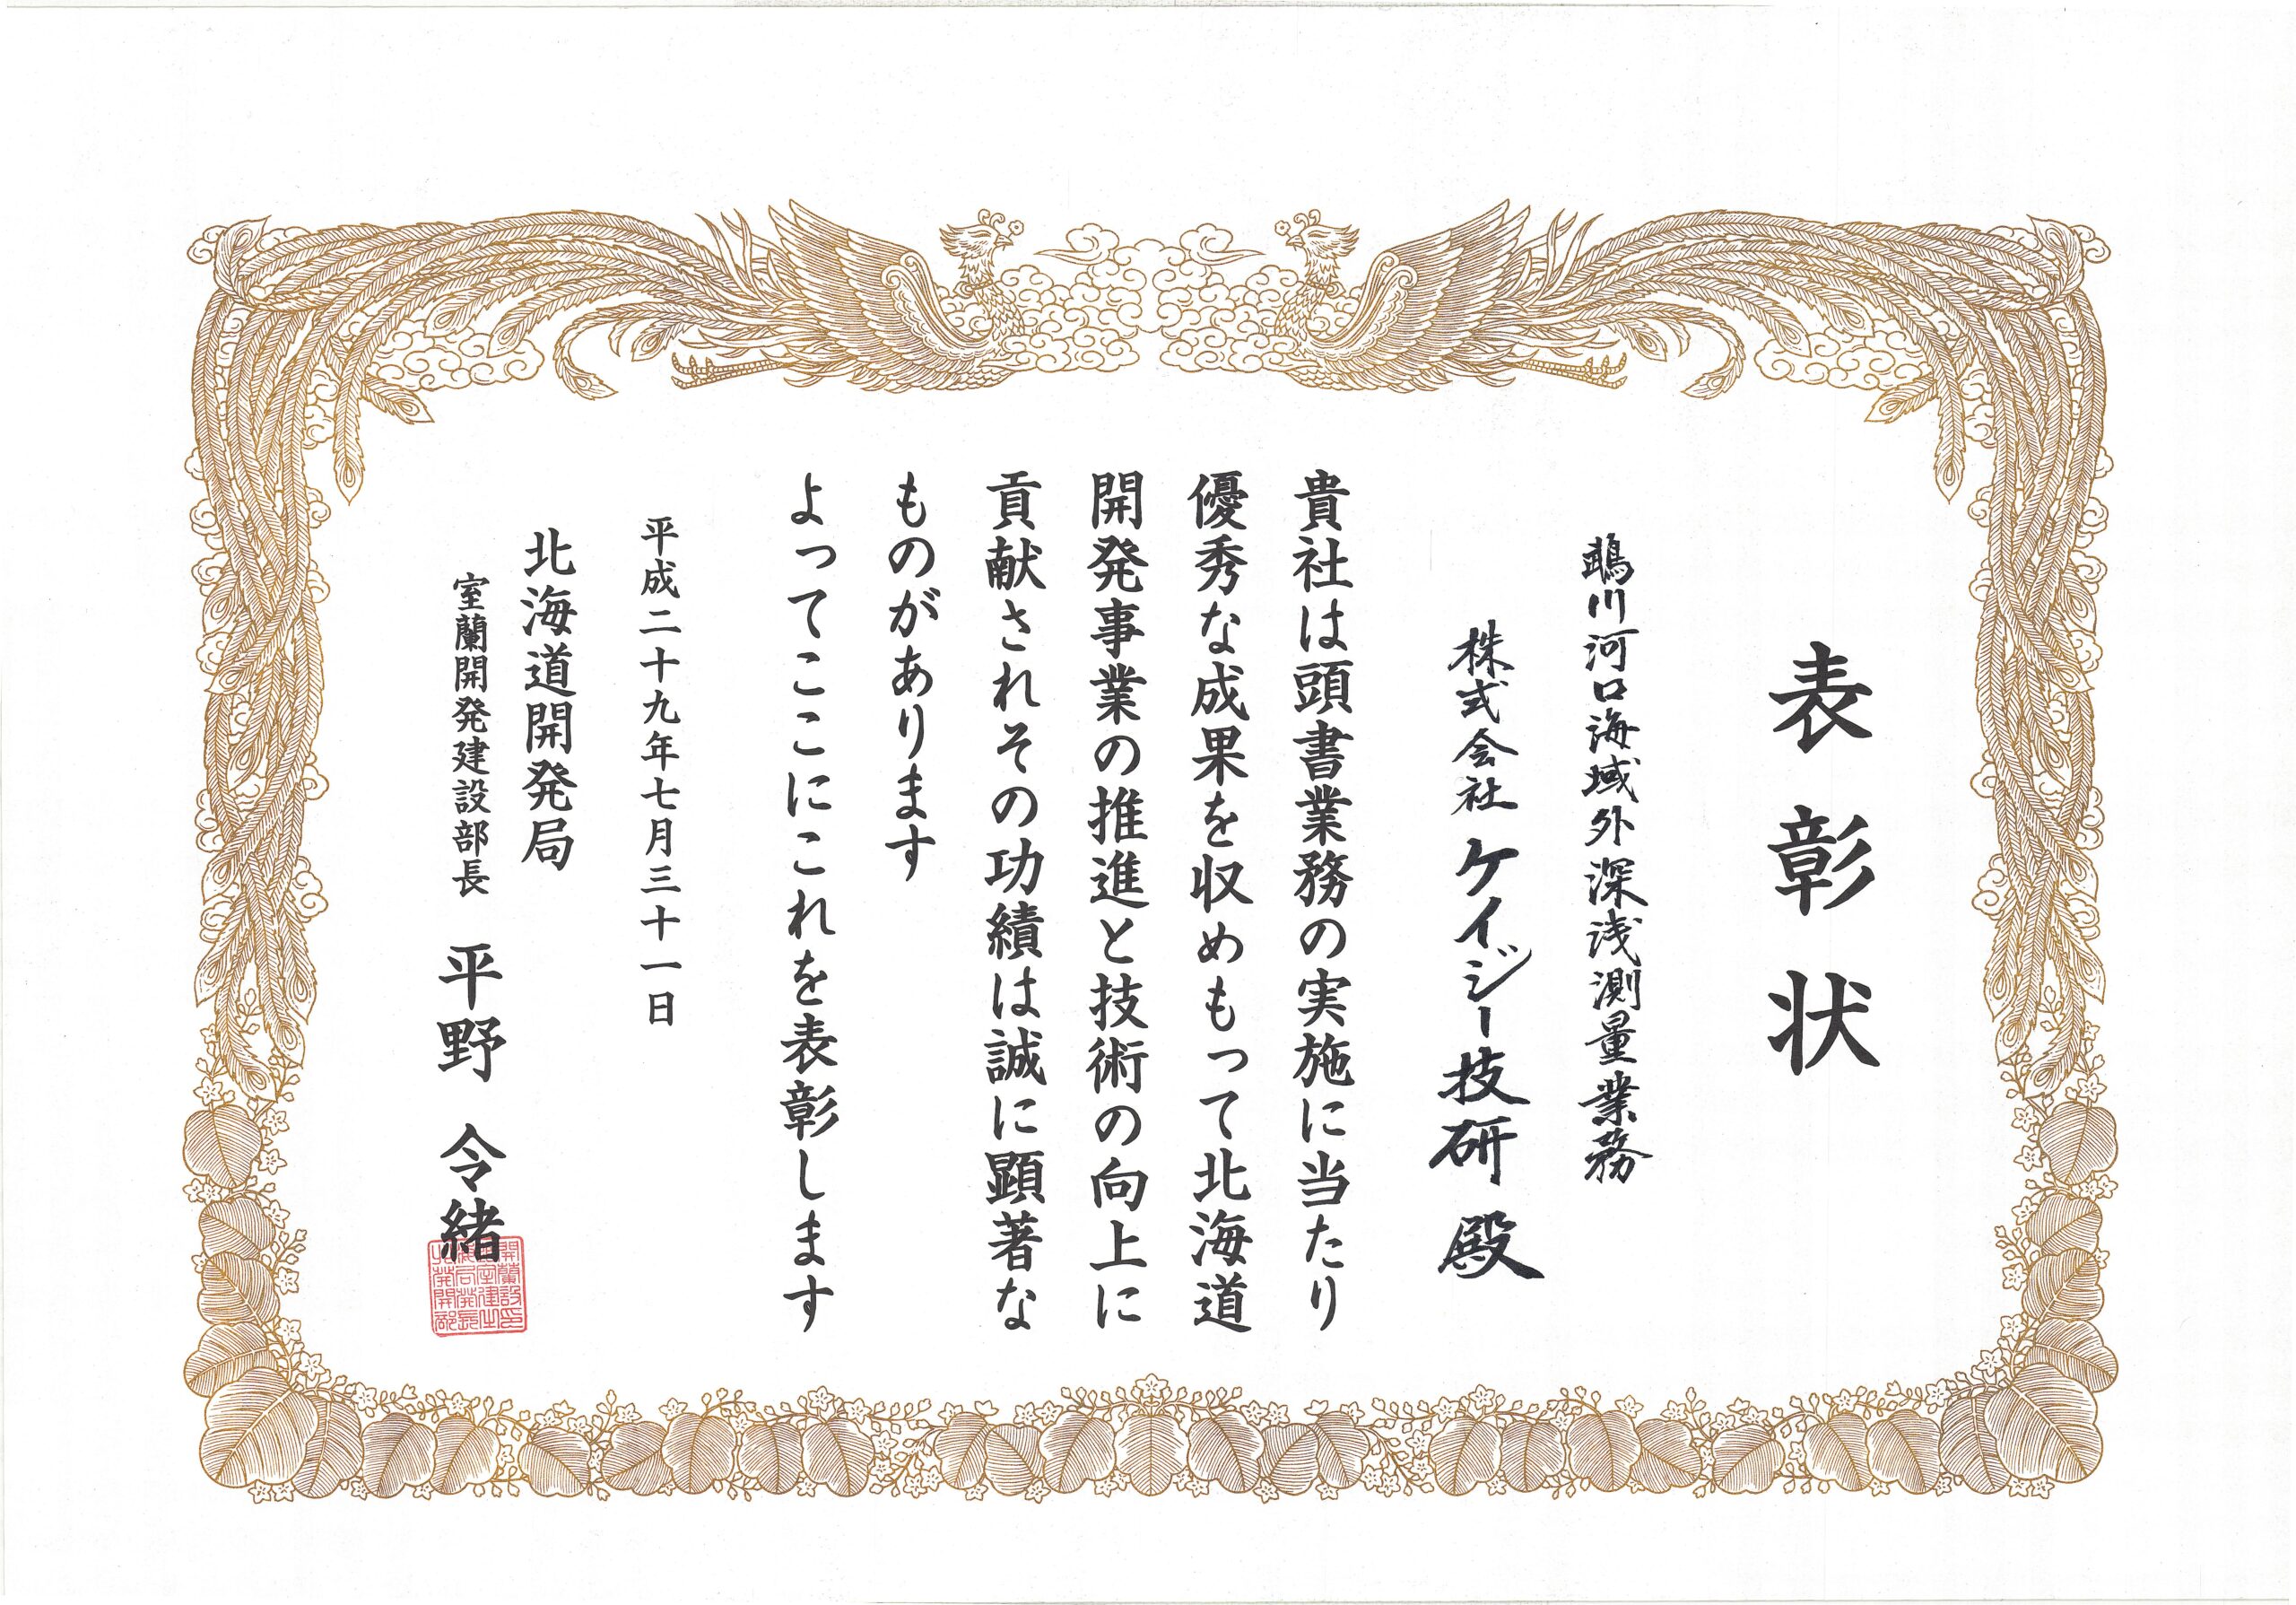 表彰状
鵡川河口海域外深浅測量業務
株式会社ケイジー技研 殿
貴社は頭書業務の実施に当たり
優秀な成果を収めもって北海道
開発事業の推進と技術の向上に
貢献されその功績は誠に顕著な
ものがあります
よってここにこれを表彰します
平成二十九年七月三十一日
北海道開発局
室蘭開発建設部長 平野 令緒